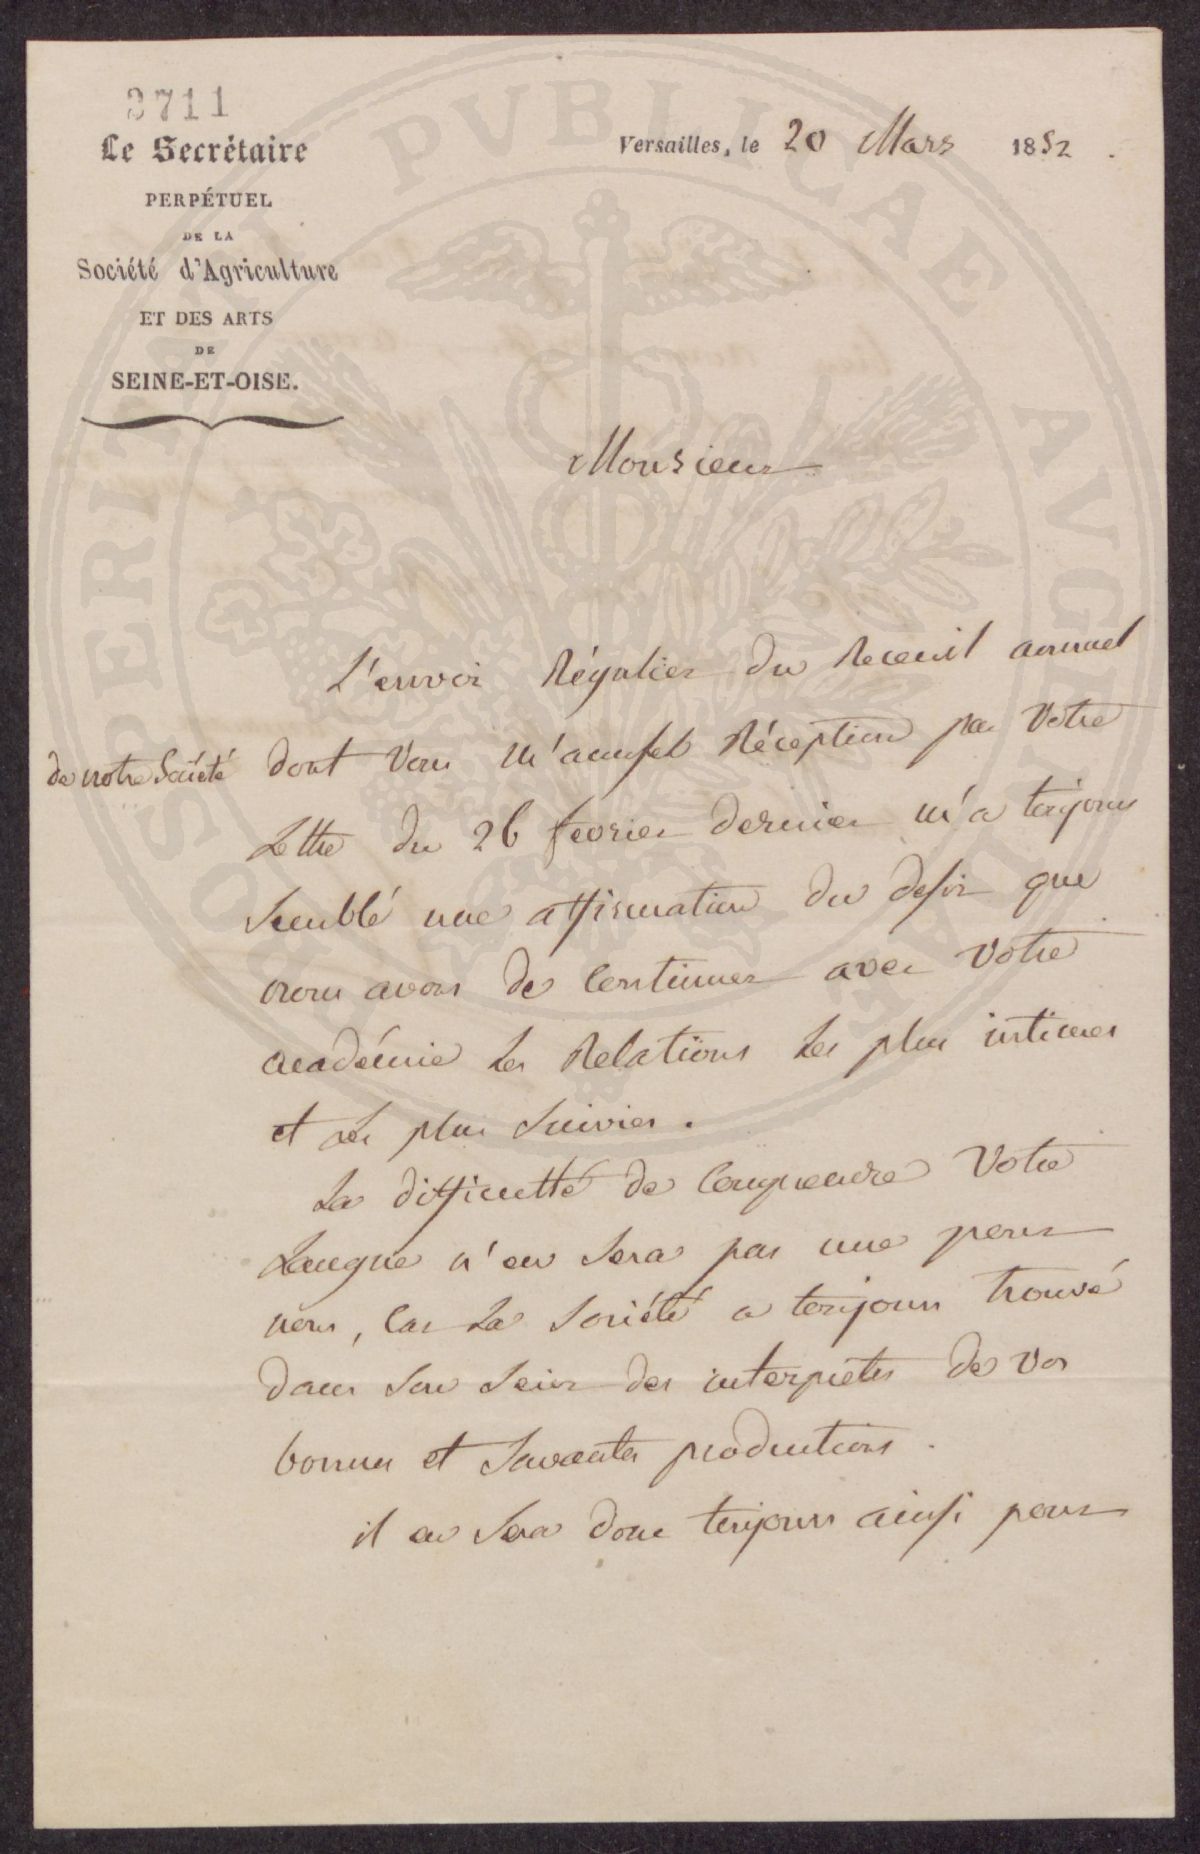 2711
Le Secrétaire
PERPÉTUEL
DE LA
Société d'Agriculture
ET DES ARTS
DE
SEINE-ET-OISE.
Versailles, le 20 Mars 1852.
PROSPERITATI PVBLICAE AVGENDAE
Monsieur
L'envoi Régulier du Receuil annuel
de notre Société dont Vous m'accusez Réception par Votre
Lettre du 26 fevrier dernier m'a toujours
semblé une affirmation du desir que
nous avons de Continuer avec Votre
académie les Relations les plus intimes
et les plus suivies.
La difficulté de Comprendre Votre
Langue n'en sera pas une pour
nous, Car la Société a toujours trouvé
dans son sein des interprètes de vos
bonnes et savantes productions.
il en sera donc toujours ainsi pour